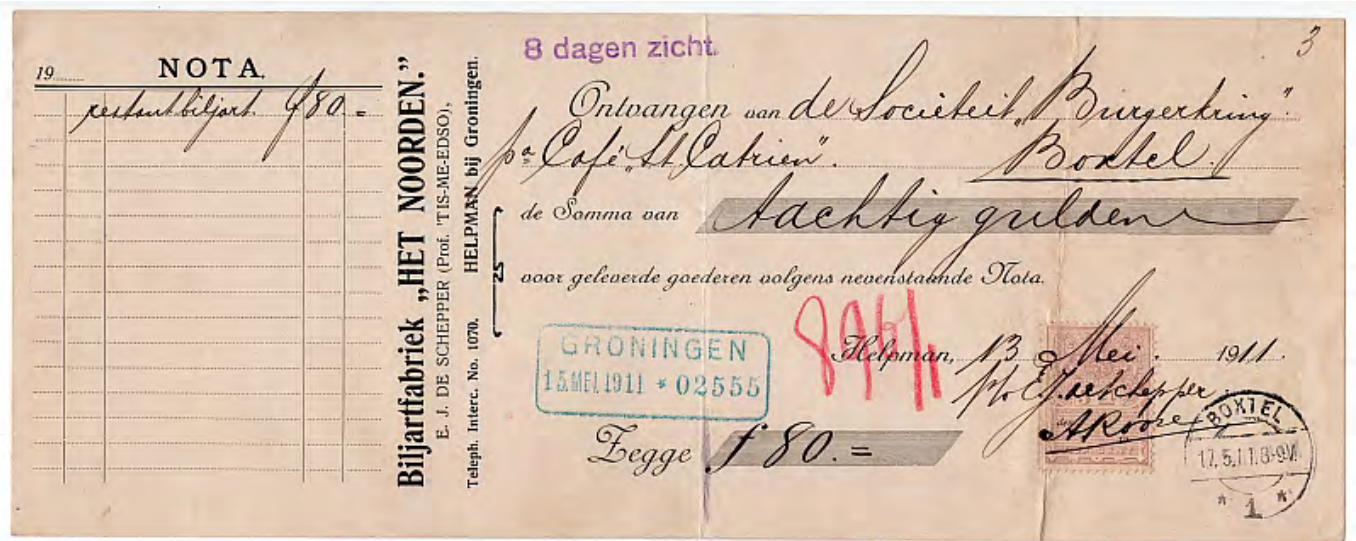 19 NOTA.
restant biljart. f 80.=
Biljartfabriek „HET NOORDEN.”
E. J. DE SCHEPPER (Prof. 'TIS-ME-EDSO),
Teleph. Interc. No. 1070. HELPMAN bij Groningen.
8 dagen zicht.
3
Ontvangen van de Societeit „Burgerkring”.
p.a Café „St. Catrien”. Boxtel.
de Somma van tachtig gulden
voor geleverde goederen volgens nevenstaande Nota.
GRONINGEN
15.MEI.1911 * 02555
Helpman, 13 Mei. 1911.
E.J. de Schepper
Zegge f 80.=
BOXTEL
17.5.11.8-9V.
* 1 *